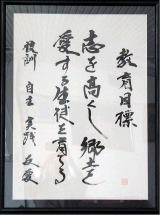 教育目標
志を高くし郷土を
愛する生徒を育てる
校訓 自主 実践 友愛